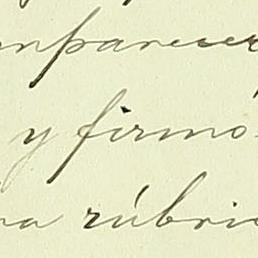 mparecer
y firmó
ra rúbric